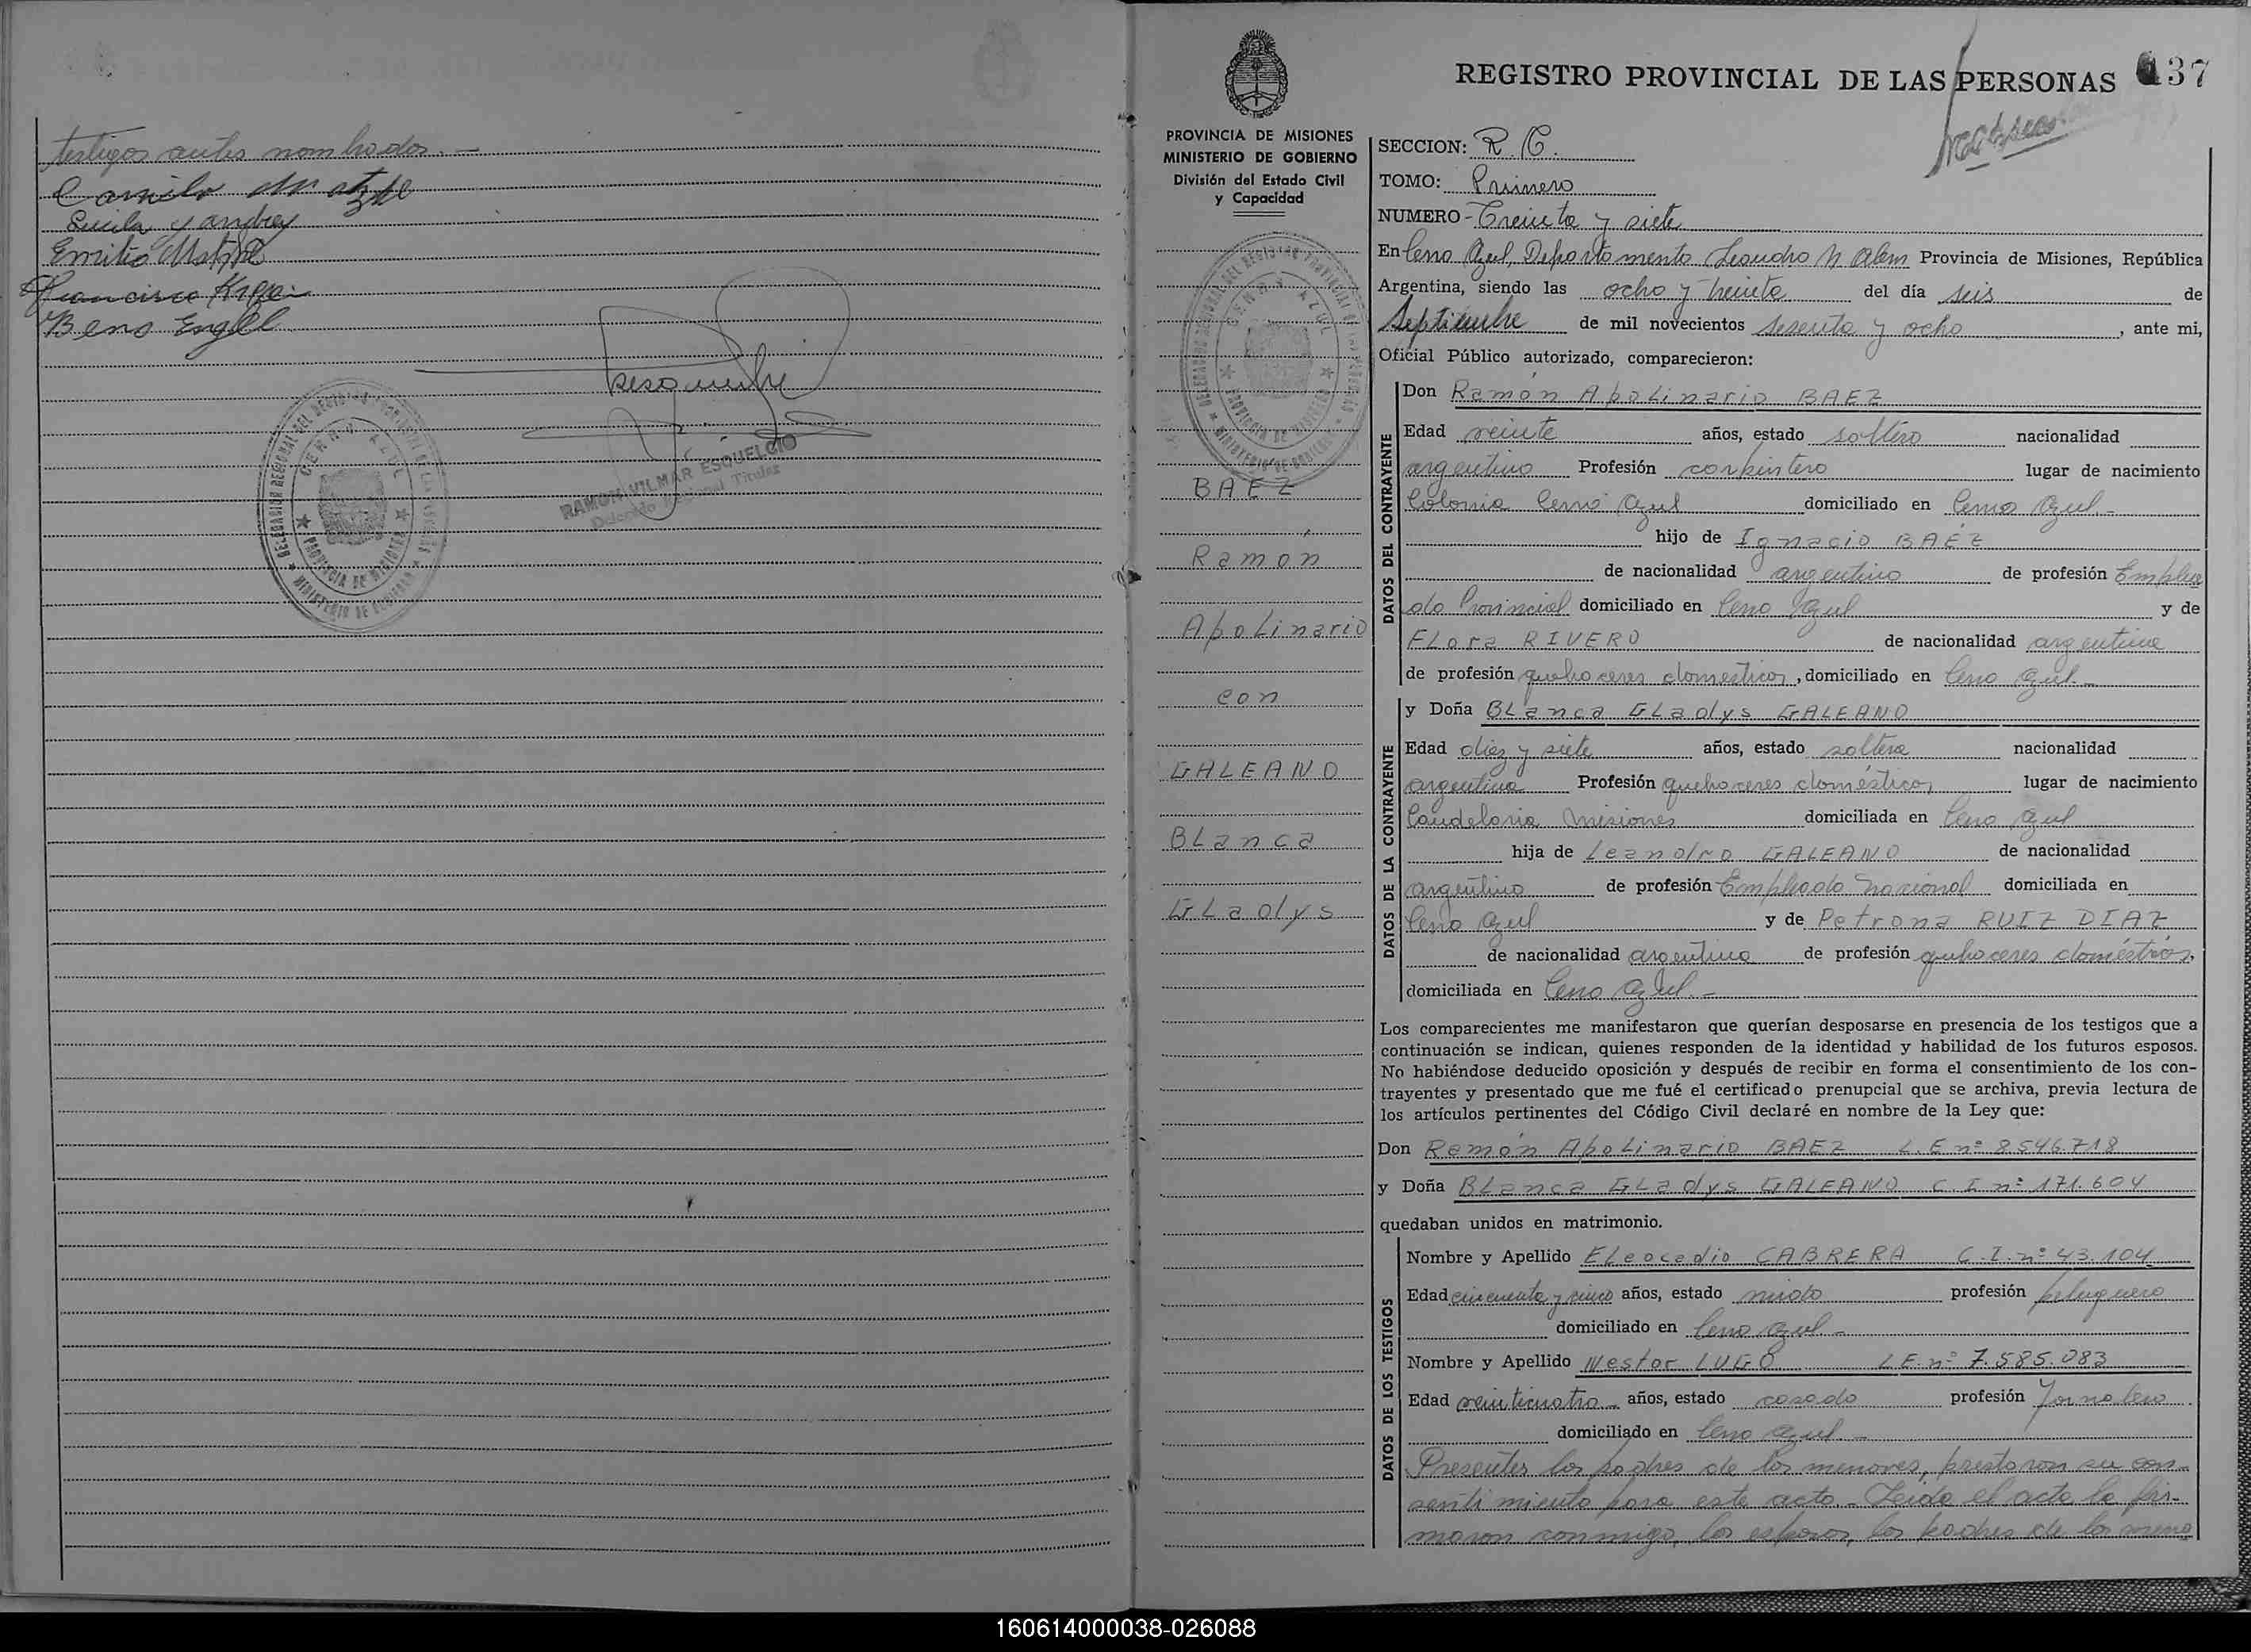 testigos antes nombrados.—
Camilo Matzke
Lucila Yandrey
Emilio Matzke
Francisco
Beno Engel
DELEGACION REGIONAL DEL REGISTRO PROVINCIAL DE LAS PERSONAS
CERRO AZUL
PROVINCIA DE MISIONES
MINISTERIO DE GOBIERNO
RAMON VILMAR ESQUELCIO
Delegado Regional Titular
REGISTRO PROVINCIAL DE LAS PERSONAS 37
PROVINCIA DE MISIONES
MINISTERIO DE GOBIERNO
División del Estado Civil
y Capacidad
DELEGACION REGIONAL DEL REGISTRO PROVINCIAL DE LAS PERSONAS
CERRO AZUL
PROVINCIA DE MISIONES
MINISTERIO DE GOBIERNO
BAEZ
Ramón
Apolinario
con
GALEANO
Blanca
Gladys
SECCION: R. C.
TOMO: Primero
NUMERO - Treinta y siete
En Cerro Azul, Departamento Leandro N Alem Provincia de Misiones, República
Argentina, siendo las ocho y treinta del día seis de
Septiembre de mil novecientos sesenta y ocho, ante mi,
Oficial Público autorizado, comparecieron:
DATOS DEL CONTRAYENTE
Don Ramón Apolinario BAEZ
Edad veinte años, estado soltero nacionalidad
argentino Profesión carpintero lugar de nacimiento
Colonia Cerro Azul domiciliado en Cerro Azul.-
hijo de Ignacio BAEZ
de nacionalidad argentino de profesión Emplea
do Provincial domiciliado en Cerro Azul y de
Flora RIVERO de nacionalidad argentina
de profesión quehaceres domesticos, domiciliado en Cerro Azul.-
DATOS DE LA CONTRAYENTE
y Doña Blanca Gladys GALEANO
Edad diez y siete años, estado soltera nacionalidad
argentina Profesión quehaceres domésticos lugar de nacimiento
Candelaria Misiones domiciliada en Cerro Azul
hija de Leandro GALEANO de nacionalidad
argentino de profesión Empleado Nacional domiciliada en
Cerro Azul y de Petrona RUIZ DIAZ
de nacionalidad argentina de profesión quehaceres domésticos,
domiciliada en Cerro Azul.-
Los comparecientes me manifestaron que querían desposarse en presencia de los testigos que a
continuación se indican, quienes responden de la identidad y habilidad de los futuros esposos.
No habiéndose deducido oposición y después de recibir en forma el consentimiento de los con-
trayentes y presentado que me fué el certificado prenupcial que se archiva, previa lectura de
los artículos pertinentes del Código Civil declaré en nombre de la Ley que:
Don Ramón Apolinario BAEZ L. E nº 8546.718
y Doña Blanca Gladys GALEANO C. I nº 171.604
quedaban unidos en matrimonio.
DATOS DE LOS TESTIGOS
Nombre y Apellido Eleocadio CABRERA C. I. nº 43.104
Edad cincuenta y cinco años, estado viudo profesión peluquero
domiciliado en Cerro Azul.-
Nombre y Apellido Nestor LUGO L E. nº 7.585.083
Edad veinticuatro años, estado casado profesión Jornalero
domiciliado en Cerro Azul.-
Presentes los padres de los menores, prestaron su con-
sentimiento para este acto.- Leida el acta la fir-
maron conmigo, los esposos, los padres de los meno
160614000038-026088